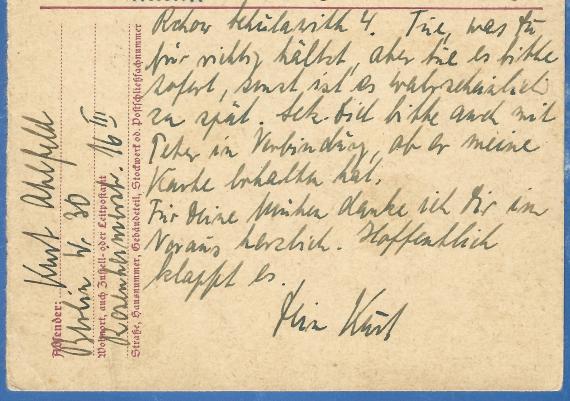 Tue, was Du
für richtig hältst, aber tue es bitte
sofort, sonst ist es wahrscheinlich
zu spät. Setz Dich bitte auch mit
Peter in Verbindung, ob er meine
Karte erhalten hat.
Für Deine Mühen danke ich Dir im
Voraus herzlich. Hoffentlich
klappt es.
Dein Kurt
Absender: Kurt Ahlefeld
Berlin W. 30
Wohnort, auch Zustell- oder Leitpostamt
Rosenheimerstr. 16 III
Straße, Hausnummer, Gebäudeteil, Stockwerk od. Postschließfachnummer